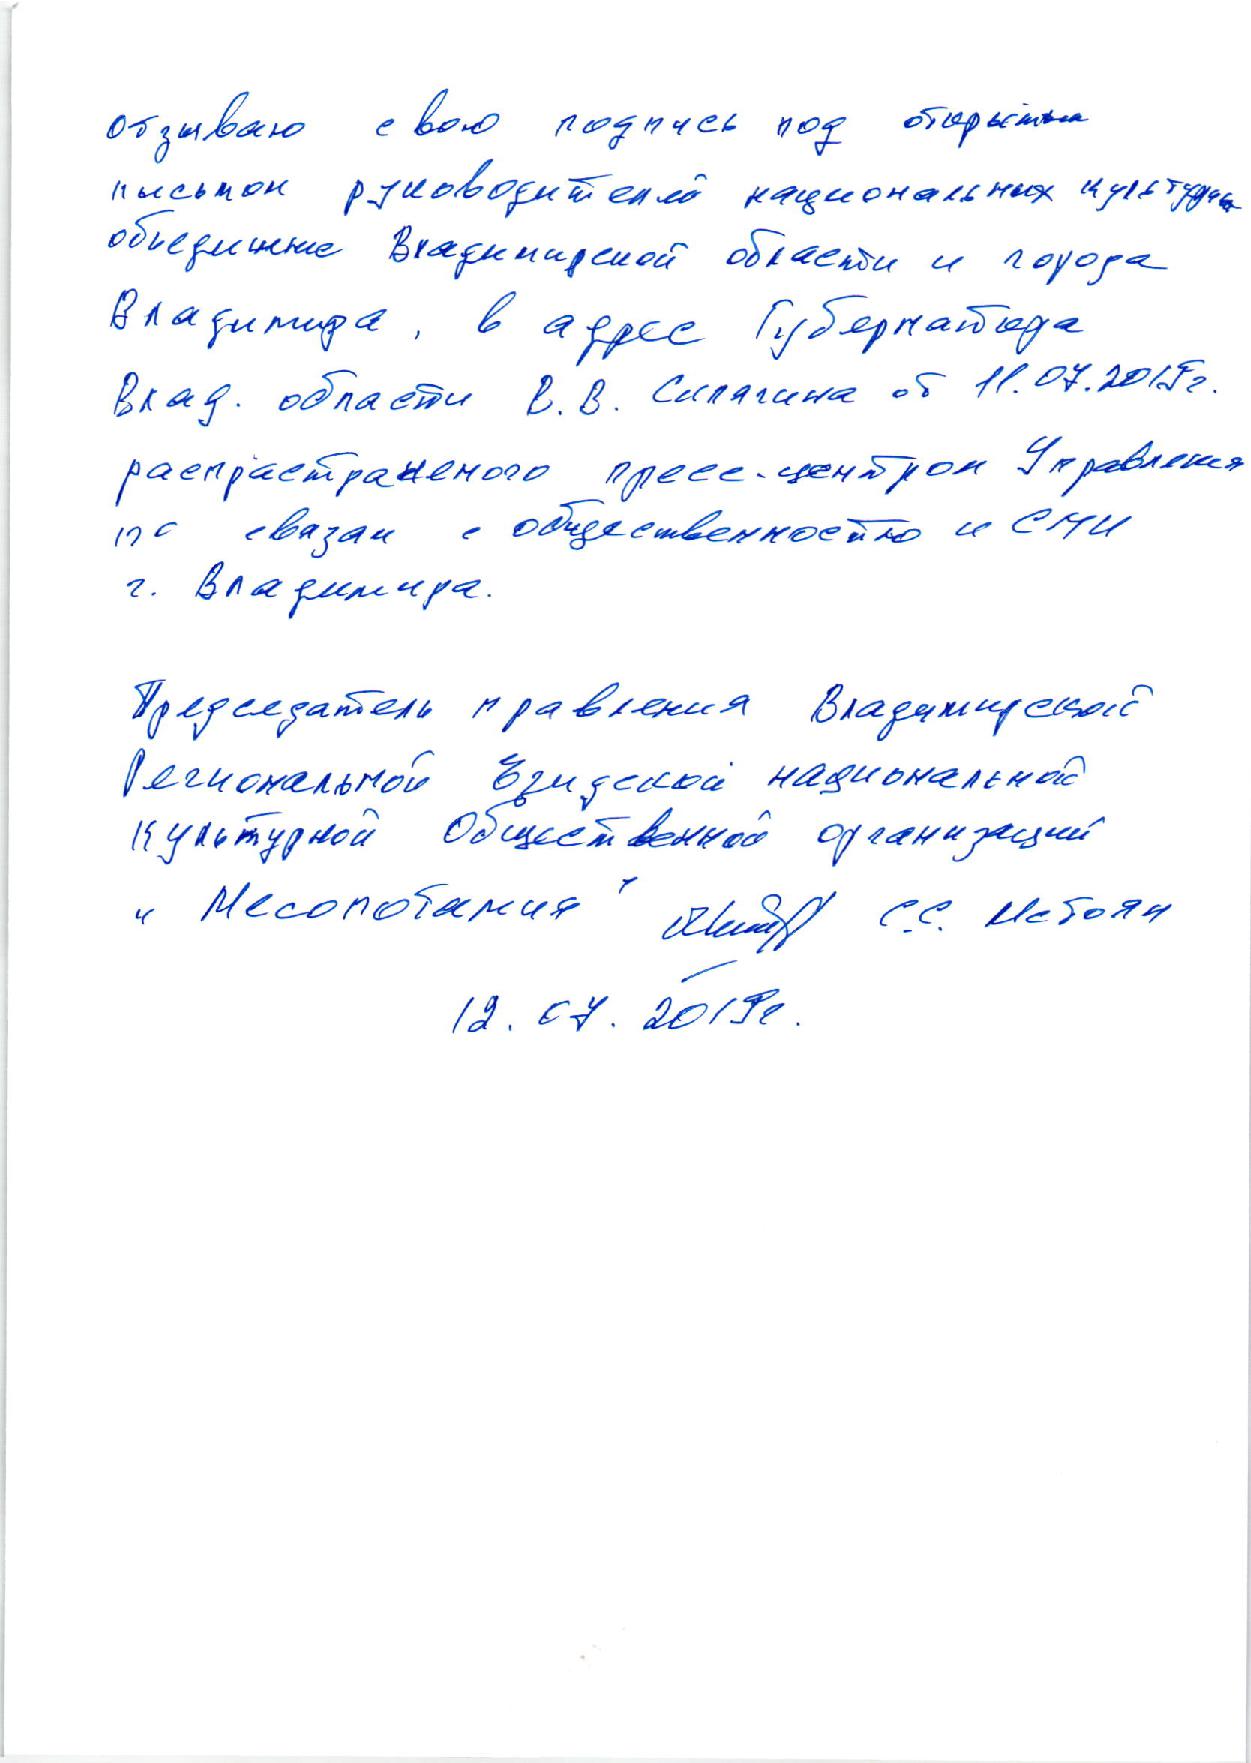 отзываю свою подпись под открытым
письмом руководителей национальных культурных
объединение Владимирской области и города
Владимира, в адрес Губернатора
Влад. области В.В. Сипягина от 11.07.2019г.
распрастраненого пресс-центром Управления
по связам с общественностью и СМИ
г. Владимира.
Председатель правления Владимирской
Региональной Езидской национальной
культурной Общественной организаций
"Месопотамия" С.С. Мстоян
12.07.2019г.